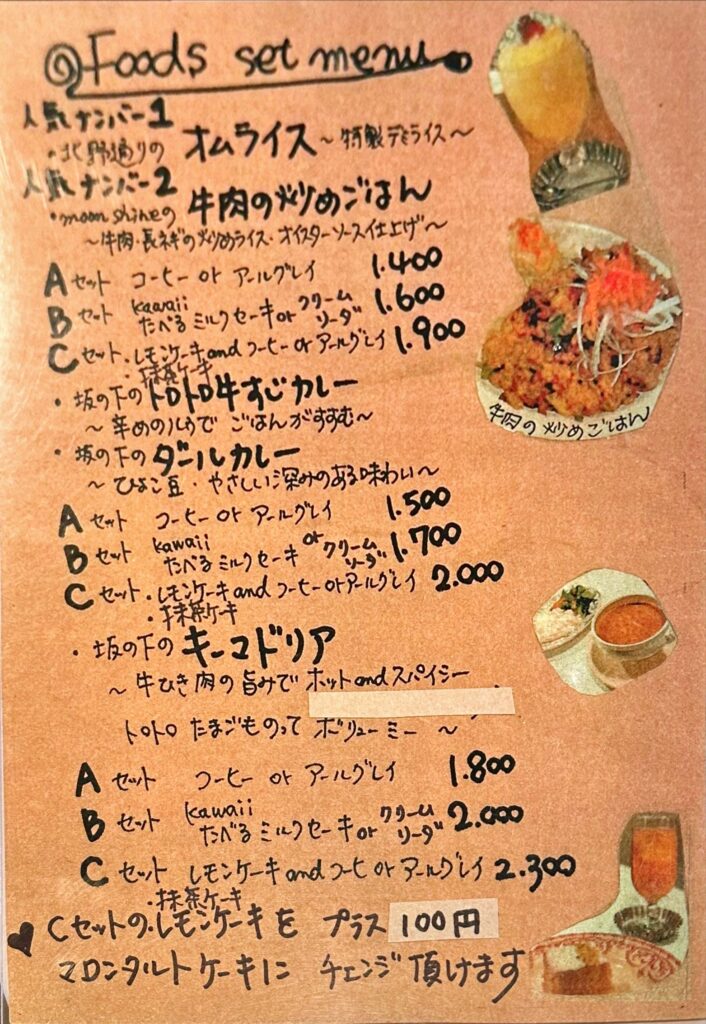 Foods set menu
人気ナンバー1
・北野通りの オムライス ～特製デミライス～
人気ナンバー2
・moon shineの 牛肉の炒めごはん
～牛肉・長ネギの炒めライス・オイスターソース仕上げ～
Aセット コーヒー or アールグレイ 1.400
Bセット kawaii たべるミルクセーキ or クリームソーダ 1.600
Cセット・レモンケーキ and コーヒー or アールグレイ 1.900
・抹茶ケーキ
・坂の下の トロトロ牛すじカレー
～辛めのルウで ごはんがすすむ～
・坂の下の ダールカレー
～ひよこ豆・やさしい深みのある味わい～
Aセット コーヒー or アールグレイ 1.500
Bセット kawaii たべるミルクセーキ or クリームソーダ 1.700
Cセット・レモンケーキ and コーヒー or アールグレイ 2.000
・抹茶ケーキ
・坂の下の キーマドリア
～牛ひき肉の旨みで ホット and スパイシー
トロトロ たまごものって ボリューミー ～
Aセット コーヒー or アールグレイ 1.800
Bセット kawaii たべるミルクセーキ or クリームソーダ 2.000
Cセット レモンケーキ and コーヒ or アールグレイ 2.300
・抹茶ケーキ
Cセットの・レモンケーキを プラス 100円
マロンタルトケーキに チェンジ頂けます
牛肉の炒めごはん